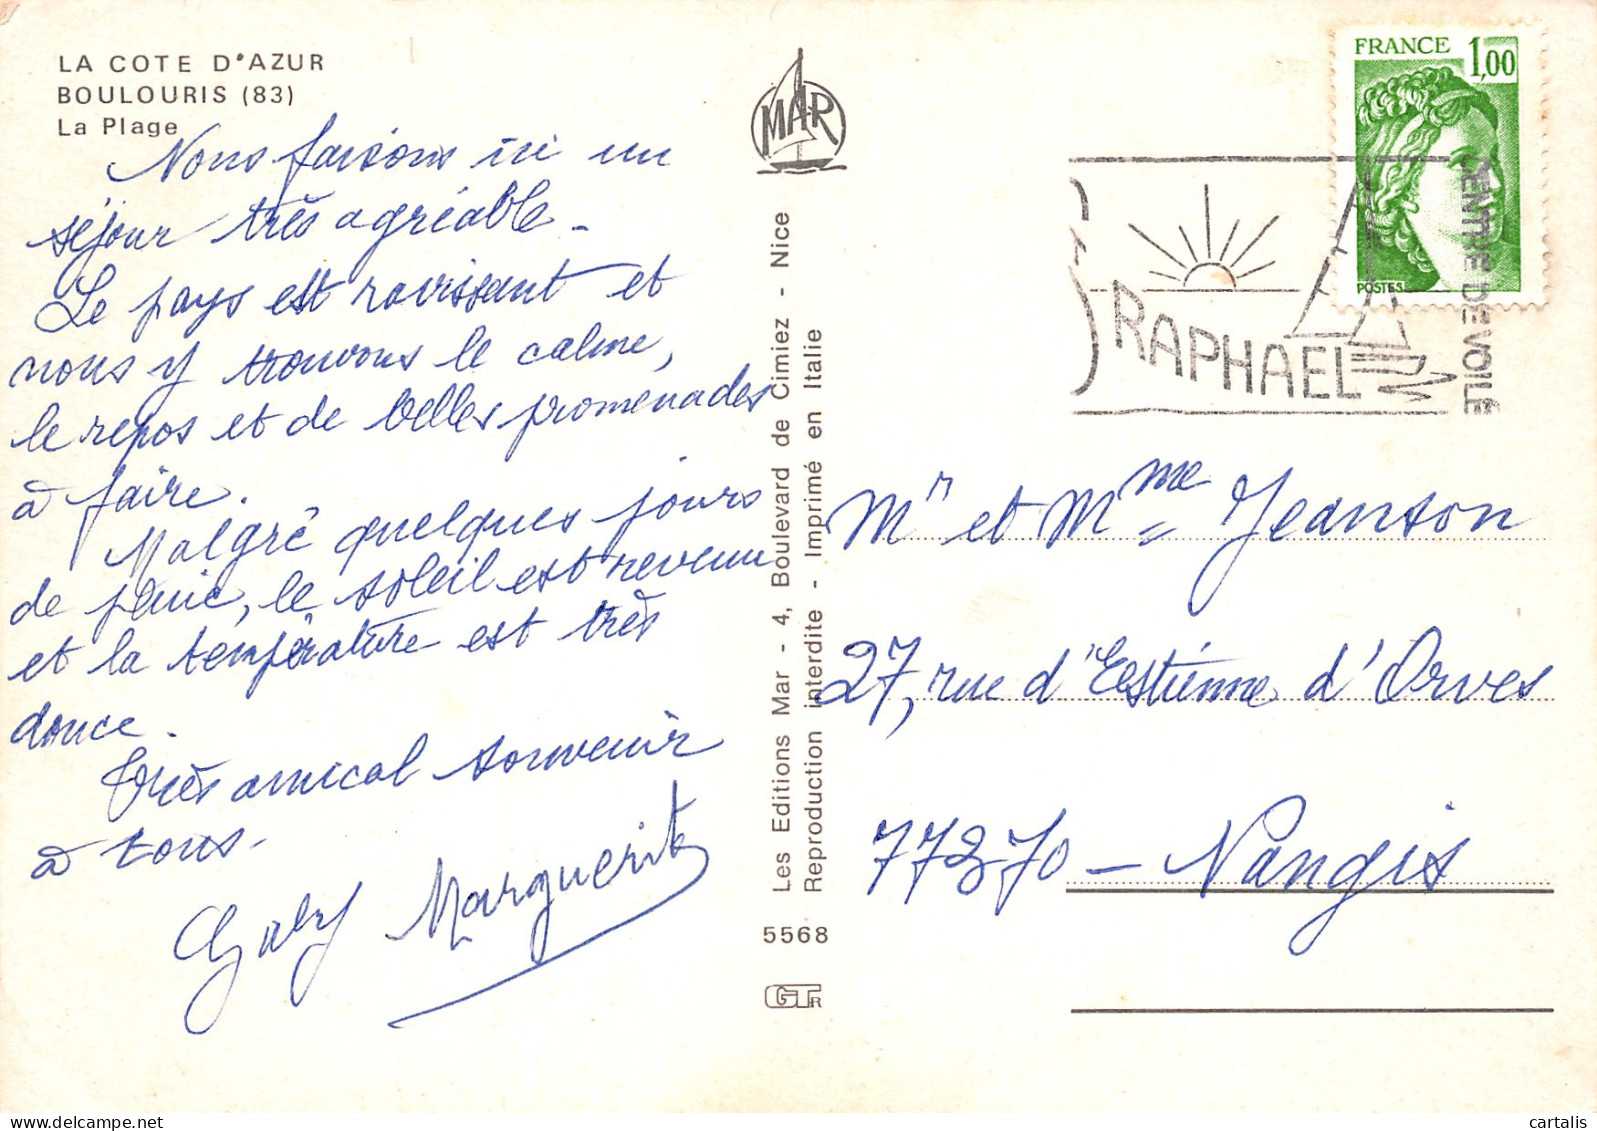 LA COTE D'AZUR
BOULOURIS (83)
La Plage
Nous faisons ici un
séjour très agréable.
Le pays est ravissant et
nous y trouvons le calme,
le repos et de belles promenades
à faire.
Malgré quelques jours
de pluie, le soleil est revenu
et la température est très
douce.
Très amical souvenir
à tous.
Gaby Marguerite
MAR
Les Editions Mar - 4, Boulevard de Cimiez - Nice
Reproduction interdite - Imprimé en Italie
5568
GTR
FRANCE 1,00
POSTES
S RAPHAEL
CENTRE DE VOILE
Mr et Mme Jeanson
27, rue d'Estienne d'Orves
77370 - Nangis
cartalis